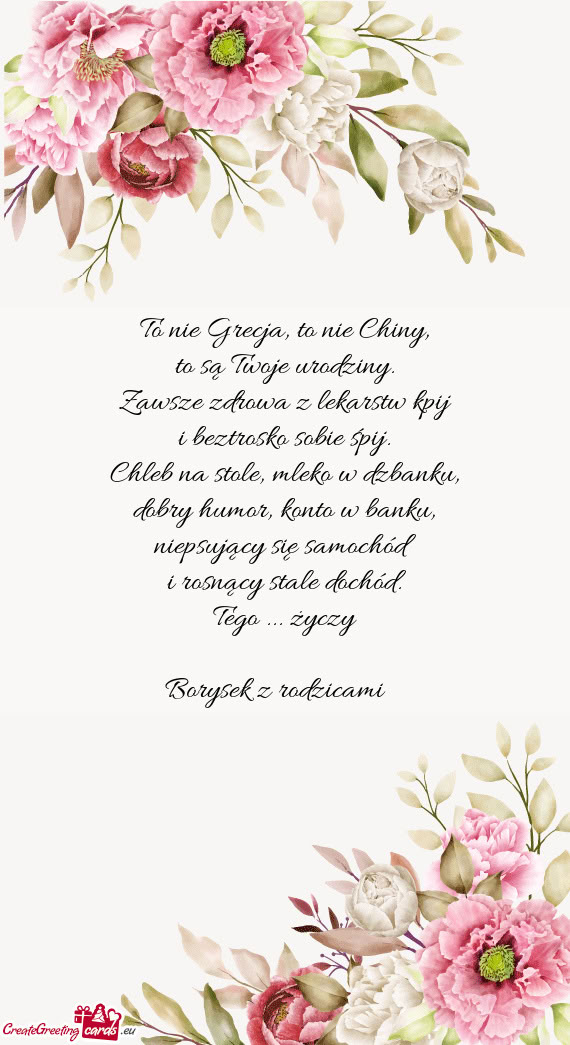 To nie Grecja, to nie Chiny,
to są Twoje urodziny.
Zawsze zdrowa z lekarstw kpij
i beztrosko sobie śpij.
Chleb na stole, mleko w dzbanku,
dobry humor, konto w banku,
niepsujący się samochód
i rosnący stale dochód.
Tego ... życzy
Borysek z rodzicami
CreateGreeting cards .eu